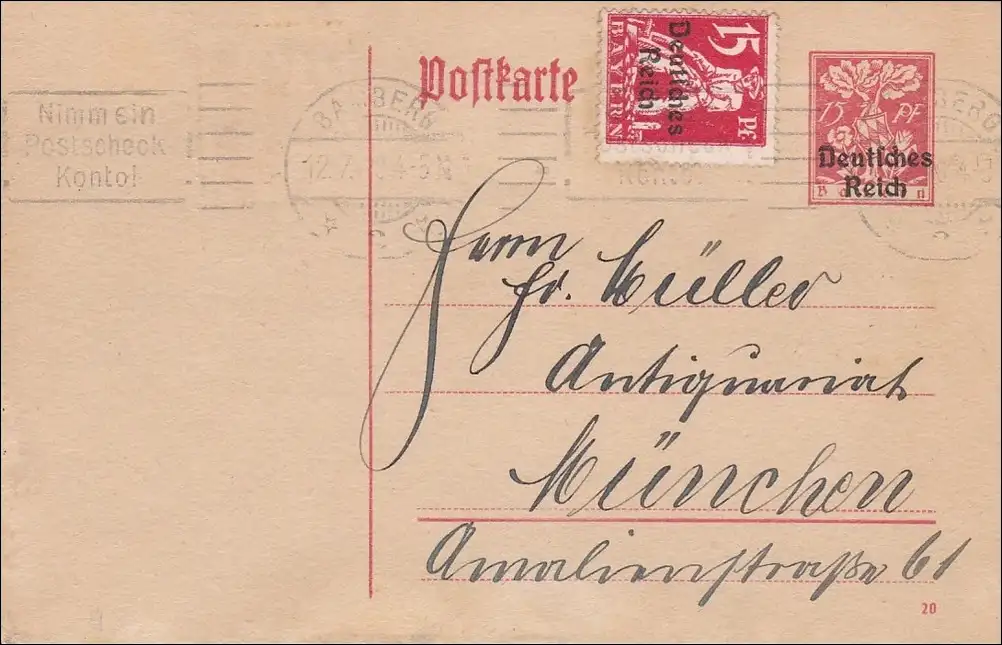 Nimm ein
Postscheck
Konto!
BAMBERG
12.7. 4-5N
Postkarte
15 PF
BAYERN
Deutsches
Reich
15 PF
Deutsches
Reich
Herrn
Fr. Müller
Antiquariat
München
Amalienstraße 61
20